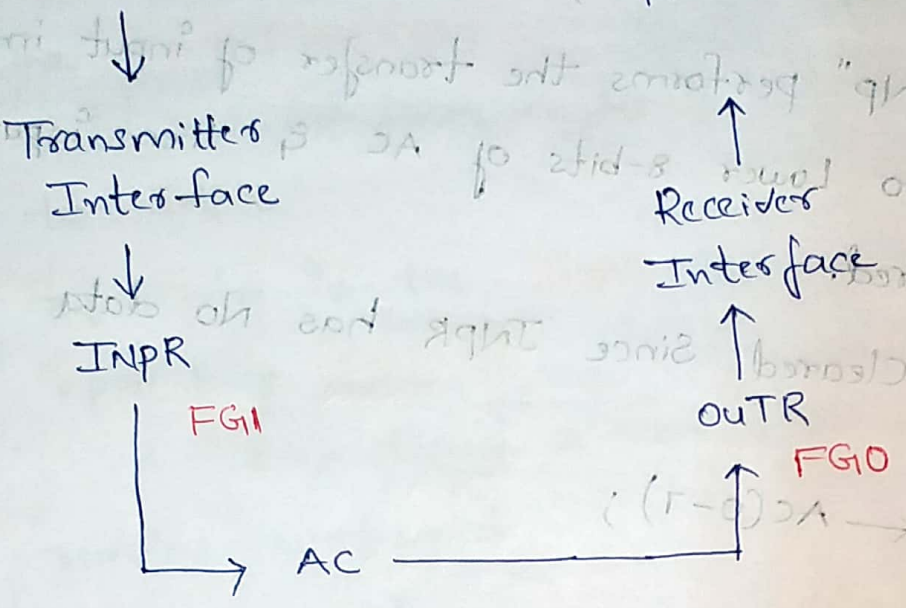 Transmitter
Interface
INPR
FGI
AC
Receiver
Interface
OUTR
FGO